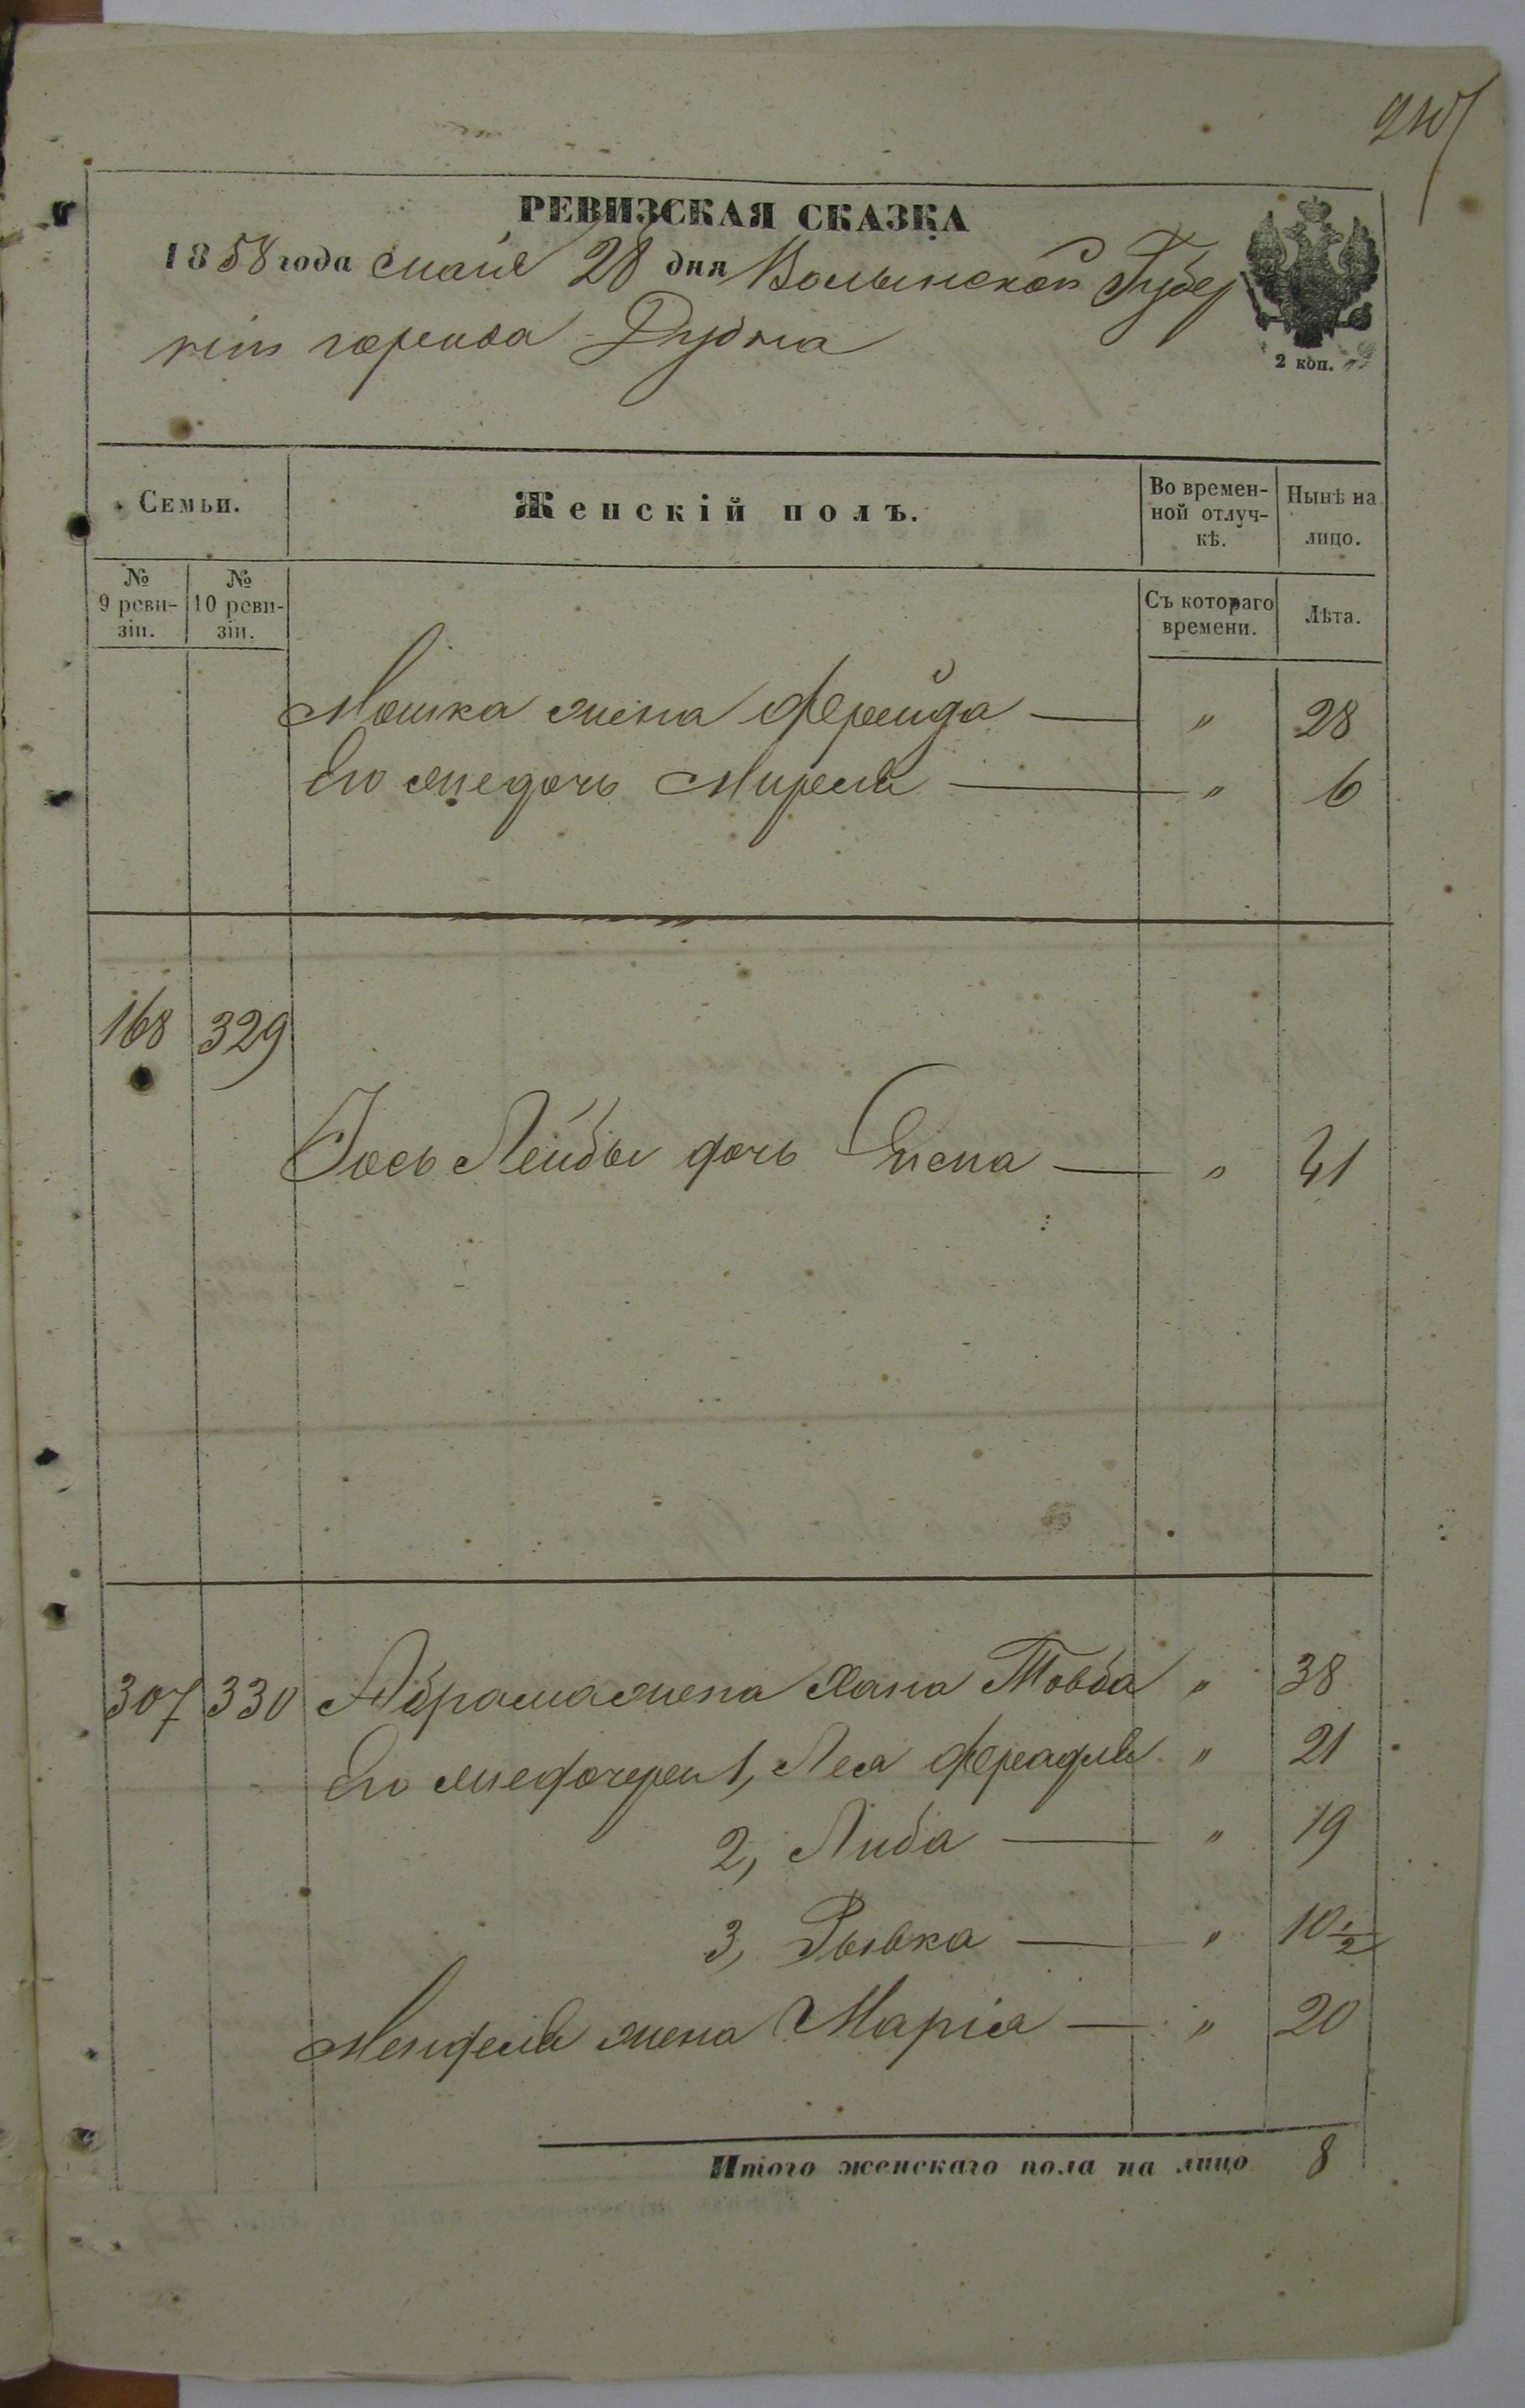 РЕВИЗСКАЯ СКАЗКА
1858 года мая 28 дня Волынской Губер
ніи города Дубна
2 коп.
Семьи.
Женскій полъ.
Во времен-
ной отлуч-
кѣ.
Нынѣ на
лицо.
№
9 реви-
зіи.
№
10 реви-
зіи.
Съ котораго
времени.
Лѣта.
Мошка жена Фрейда — " 28
Его же дочь Миреля — " 6
168 329
Іось Лейбы дочь — " 41
307 330 Абрама жена Хана Товба " 38
Его же дочери 1, Лея Фрадля " 21
2, Либа — " 19
3, Рывка — " 10 1/2
Менделя жена Марія — " 20
Итого женскаго пола на лицо 8